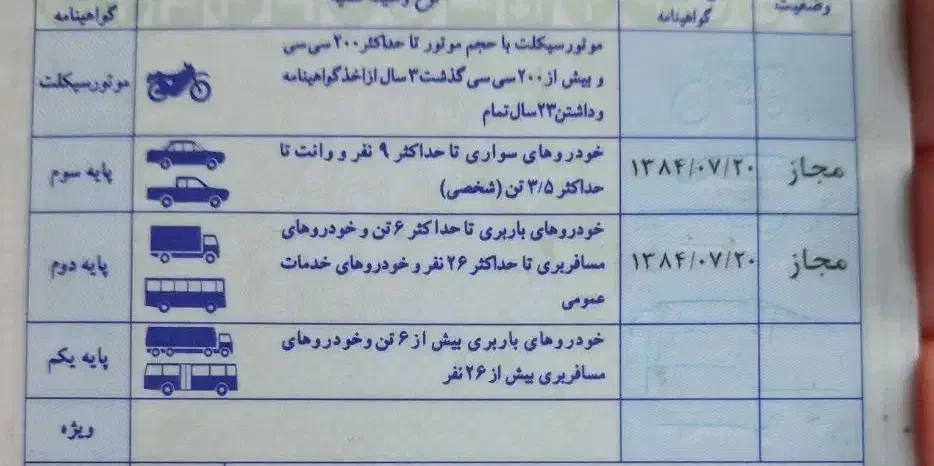 وضعیت
گواهینامه
گواهینامه
موتورسیکلت با حجم موتور تا حداکثر ۲۰۰ سی سی
و بیش از ۲۰۰ سی سی گذشت ۳ سال از اخذ گواهینامه
و داشتن ۲۳ سال تمام
موتورسیکلت
مجاز
۱۳۸۴/۰۷/۲۰
خودروهای سواری تا حداکثر ۹ نفر و وانت تا
حداکثر ۳/۵ تن (شخصی)
پایه سوم
مجاز
۱۳۸۴/۰۷/۲۰
خودروهای باربری تا حداکثر ۶ تن و خودروهای
مسافربری تا حداکثر ۲۶ نفر و خودروهای خدمات
عمومی
پایه دوم
خودروهای باربری بیش از ۶ تن و خودروهای
مسافربری بیش از ۲۶ نفر
پایه یکم
ویژه